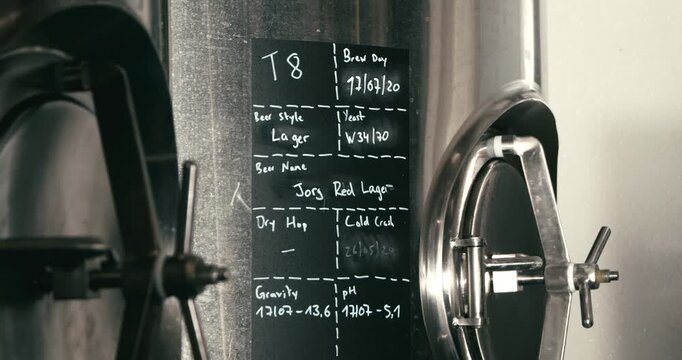 T8
Brew Day
17/07/20
Beer Style
Lager
Yeast
W34/70
Beer Name
Jorg Red Lager
Dry Hop
-
Cold Crash
26/05/20
Gravity
17/07-13,6
pH
17/07-5,1